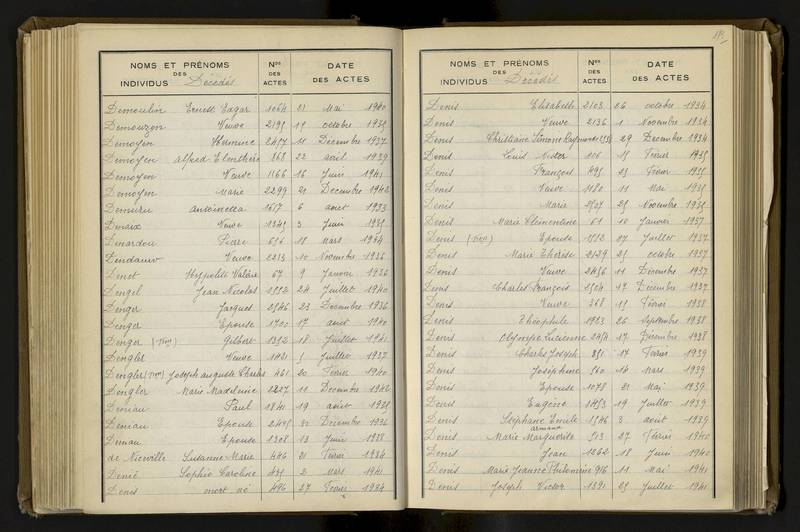 NOMS ET PRÉNOMS DES INDIVIDUS Décédés
Nos DES ACTES
DATE DES ACTES
Demoulin Ernest Edgar 1064 21 Mai 1940
Demouzon Veuve 2195 15 octobre 1935
Demoyen Hermine 2457 11 Décembre 1937
Demoyen alfred 368 22 avril 1939
Demoyen Veuve 1166 16 Juin 1941
Demoyen Marie 2299 21 Decembre 1942
antoinetta 1617 6 aout 1933
Veuve 1345 3 Juin 1935
Denardou Pierre 656 18 Mars 1944
Veuve 2213 10 Novembre 1936
Denet Hyppolite Valérie 67 9 Janvier 1936
Dengel Jean Nicolas 1552 24 Juillet 1940
Denger Jacques 2546 23 Décembre 1936
Denger Epouse 1700 17 aout 1940
Denger Gilbert 1352 18 Juillet 1941
Dengler Veuve 5 Juillet 1937
Dengler Joseph auguste Charles 461 20 Février 1940
Dengler Marie Madeleine 2227 11 Decembre 1942
Deniau Paul 1841 19 août 1935
Deniau Epouse 2495 Décembre 1936
Deniau Epouse 1308 13 Juin 1938
de Nieuville Susanne Marie 446 21 Février 1934
Sophie Caroline 435 2 Mars 1941
Denis mort né 496 27 Février 1934
NOMS ET PRÉNOMS DES INDIVIDUS Décédés
Nos DES ACTES
DATE DES ACTES
Denis Elisabeth 2103 26 octobre 1934
Denis Veuve 2136 1 Novembre 1934
Denis Christiane Simone Raymonde 29 Decembre 1934
Denis Louis Victor 106 15 Février 1935
Denis François 495 23 Février 1935
Denis Veuve 1180 11 Mai 1935
Denis Marie 2507 25 Novembre 1935
Denis Marie Clementine 61 10 Janvier 1937
Denis Epouse 1552 27 Juillet 1937
Denis Marie Thérèse 2129 25 octobre 1937
Denis Veuve 2456 11 Décembre 1937
Denis Charles François 1504 17 Décembre 1937
Denis Veuve 368 15 Février 1938
Denis Théophile 1923 26 Septembre 1938
Denis Olympe Lucienne 17 Décembre 1938
Denis Charles Joseph 351 14 Février 1939
Denis Joséphine 560 14 Mars 1939
Denis Epouse 1078 21 Mai 1939
Denis Eugène 1453 19 Juillet 1939
Denis Stéphane Emile 1546 3 aout 1939
armand
Denis Marie Marguerite 513 27 Février 1940
Denis Jean 1262 18 Juin 1940
Denis Marie Jeanne Philomène 916 11 Mai 1941
Denis Joseph Victor 1391 25 Juillet 1941